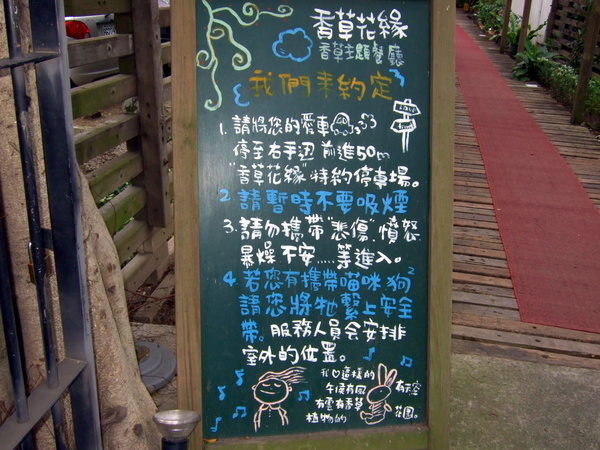 香草花緣
香草主題餐廳
我們來約定
1. 請將您的愛車
停至右手邊 前進50m
"香草花緣"特約停車場。
2. 請暫時不要吸煙
3. 請勿攜帶"悲傷"、憤怒
暴燥 不安.....等進入。
4. 若您有攜帶喵咪狗2
請您將牠繫上安全
帶。服務人員会安排
室外的位置。
我♡這樣的
午後有風
有雲有香草
植物的
有天空
花園。